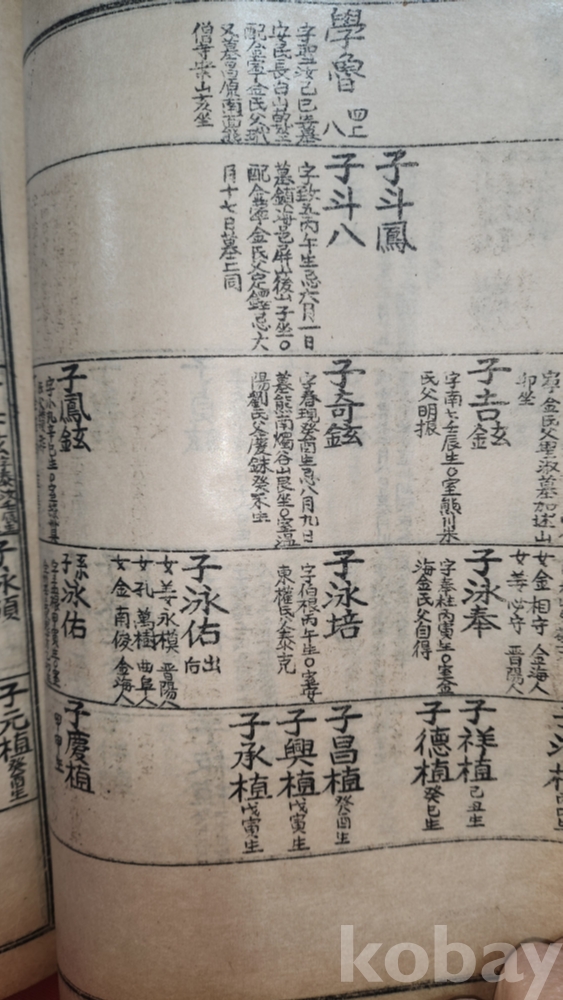 學魯 四上
八
字聖汝己巳生墓
安民長白山乾坐
配金寧金氏父
又墓昌原南面熊
僧寺柴山亥坐
子斗鳳
子斗八
字致五丙午生忌六月一日
墓鎭海邑屛山後山子坐○
配金寧金氏父定鍾忌六
月十七日墓上同
寧金氏父聖淑墓加述山
卯坐
子吉鉉
字南七壬辰生○室熊川朱
氏父明振
子奇鉉
字春現癸酉生忌八月九日
墓熊南燭谷山艮坐○室温
陽劉氏父慶銖癸未生
子鳳鉉
女金相守 金海人
女姜必守 晋陽人
子泳奉
字奉杜丙寅生○室金
海金氏父自得
子泳培
字伯根丙午生○室安
東權氏父泰克
子泳佑 出向
女姜永模 晋陽人
女孔萬樹 曲阜人
女金南俊 金海人
孫子泳佑
子祥植 己丑生
子德植 癸巳生
子昌植 癸酉生
子興植 戊寅生
子承植 戊寅生
子慶植
甲申生
子永植
子元植 癸酉生
kobay